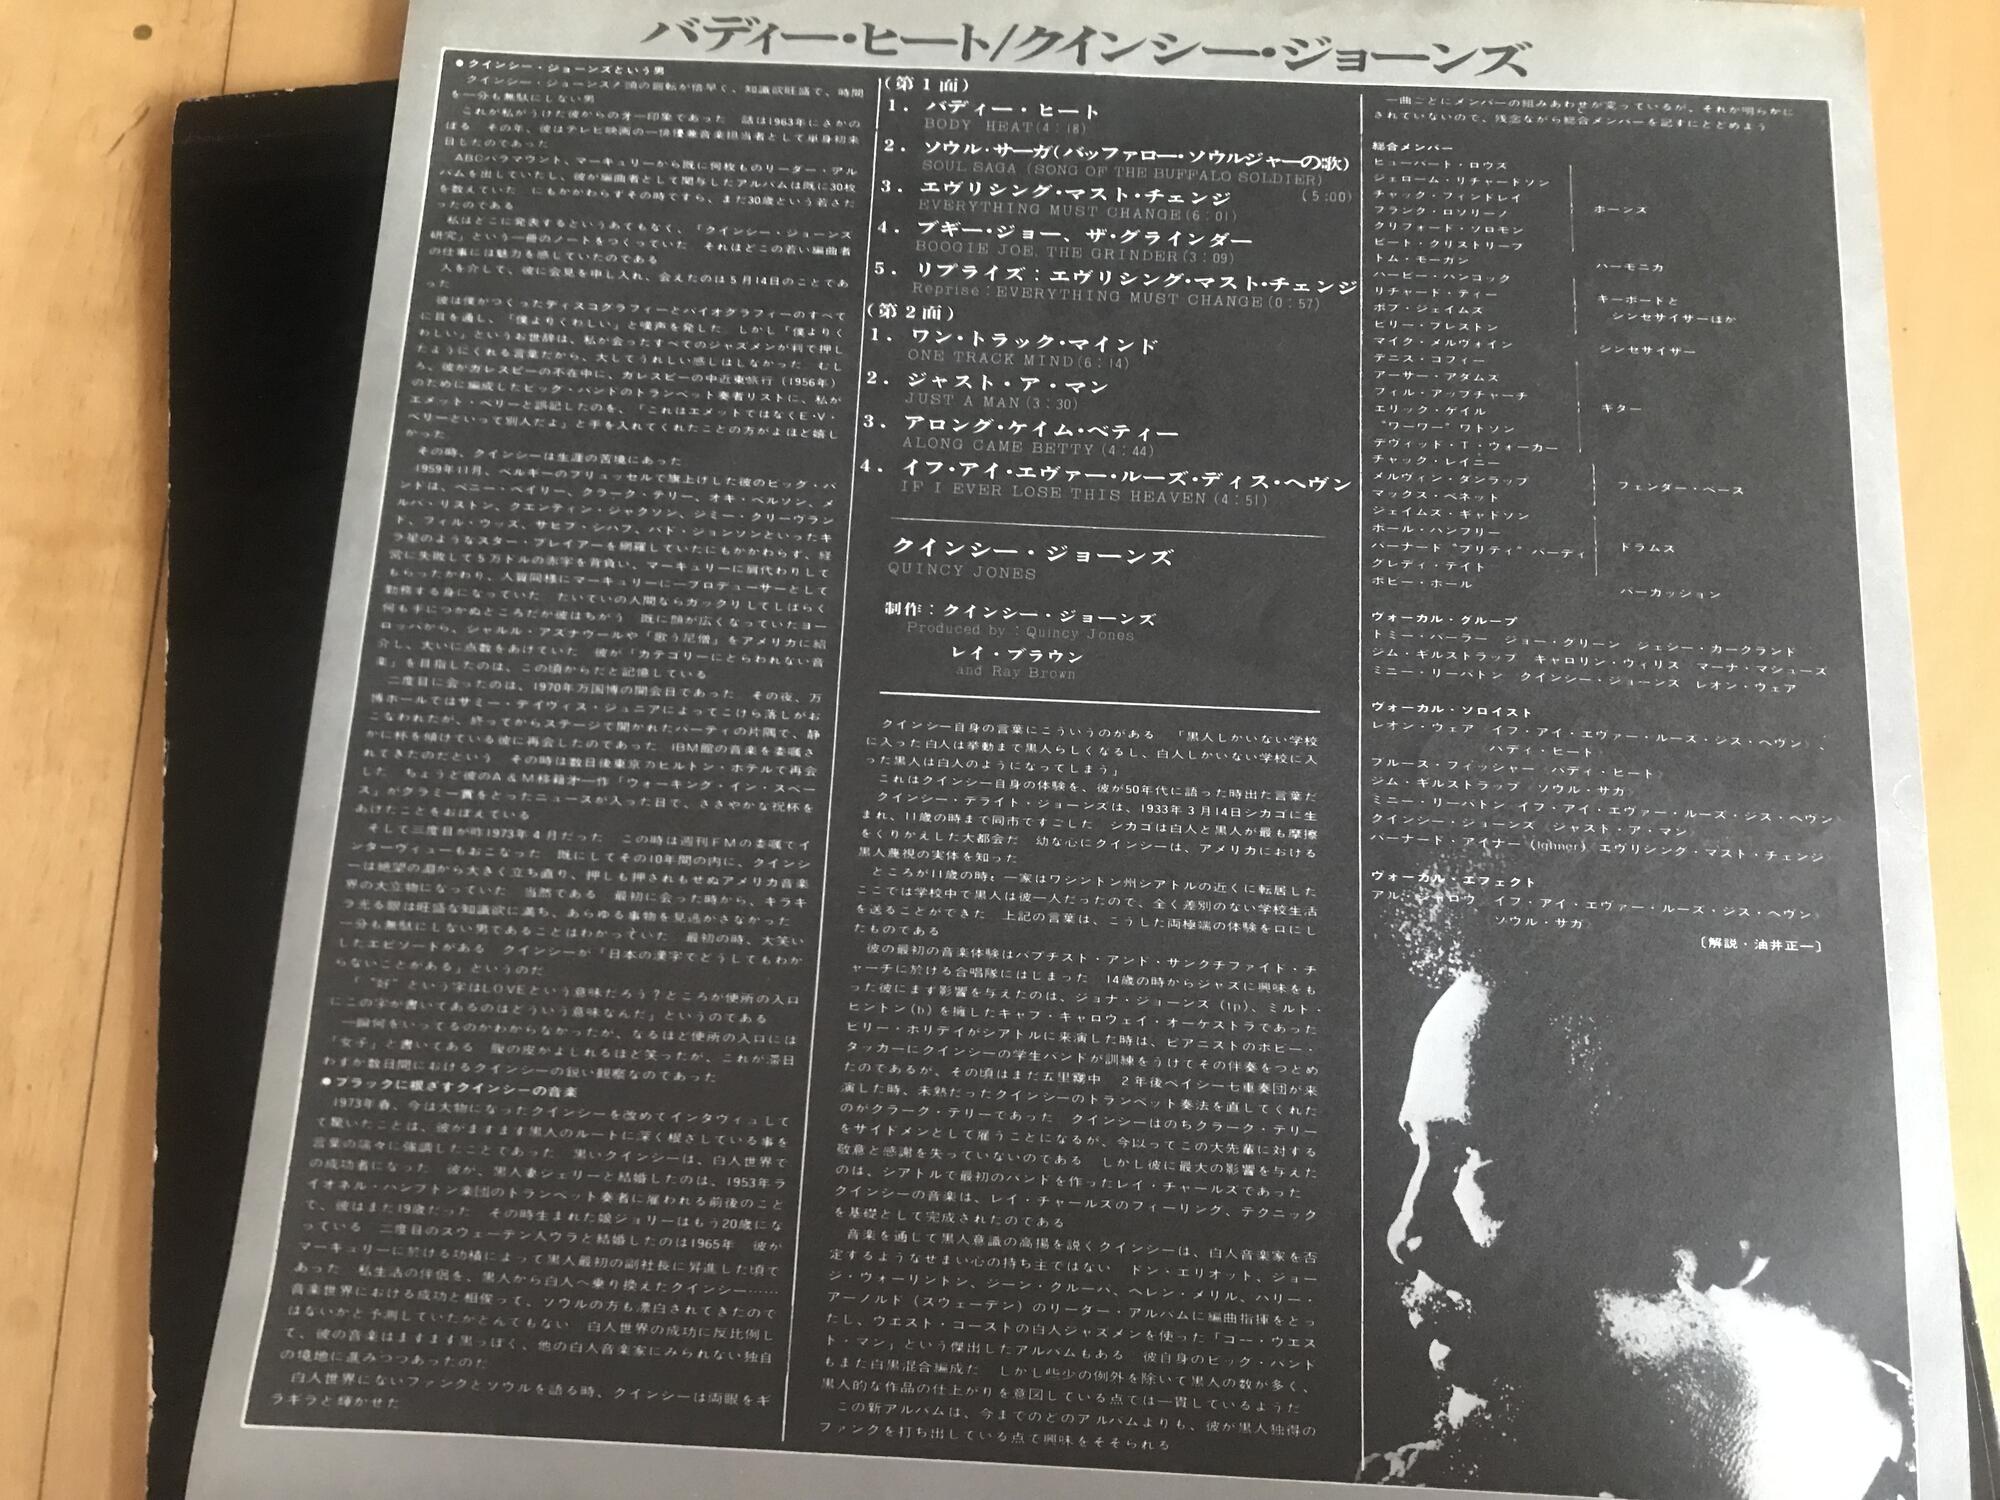 バディー・ヒート/クインシー・ジョーンズ
●クインシー・ジョーンズという男
クインシー・ジョーンズ/頭の回転が倍早く、知識欲旺盛で、時間
を一分も無駄にしない男
これが私がうけた彼からの才一印象であった 話は1963年にさかの
ぼる その年、彼はテレビ映画の一俳優兼音楽担当者として単身初来
目したのであった
ABCパラマウント、マーキュリーから既に何枚ものリーダー・アル
バムを出していたし、彼が編曲者として関与したアルバムは既に30枚
を数えていた にもかかわらずその時ですら、まだ30歳という若さだ
ったのである
私はどこに発表するというあてもなく、「クインシー・ジョーンズ
研究」という一冊のノートをつくっていた それほどこの若い編曲者
の仕事には魅力を感じていたのである
人を介して、彼に会見を申し入れ、会えたのは5月14日のことであ
った
彼は僕がつくったディスコグラフィーとバイオグラフィーのすべて
に目を通し、「僕よりくわしい」と嘆声を発した しかし「僕よりく
わしい」というお世辞は、私が会ったすべてのジャズメンが判で押し
たようにくれる言葉だから、大してうれしい感じはしなかった むし
ろ、彼がガレスピーの不在中に、ガレスピーの中近東旅行(1956年)
のために編成したビッグ・バンドのトランペット奏者リストに、私が
エメット・ベリーと誤記したのを、「これはエメットではなくE・V・
ペリーといって別人だよ」と手を入れてくれたことの方がよほど嬉し
かった
その時、クインシーは生涯の苦境にあった
1959年11月、ベルギーのブリュッセルで旗上げした彼のビッグ・バ
ンドは、ベニー・ベイリー、クラーク・テリー、オキ・ペルソン、メ
ルバ・リストン、クエンティン・ジャクソン、ジミー・クリーヴラン
ド、フィル・ウッズ、サヒブ・シハブ、バド・ジョンソンといったキ
ラ星のようなスター・プレイアーを網羅していたにもかかわらず、経
営に失敗して5万ドルの赤字を背負い、マーキュリーに肩代わりして
もらったかわり、人質同様にマーキュリーに一プロデューサーとして
勤務する身になっていた たいていの人間ならガックリしてしばらく
何も手につかぬところだが彼はちがう 既に顔が広くなっていたヨー
ロッパから、シャルル・アズナヴールや「歌う尼僧」をアメリカに紹
介し、大いに点数をあげていた 彼が「カテゴリーにとらわれない音
楽」を目指したのは、この頃からだと記憶している
二度目に会ったのは、1970年万国博の開会日であった その夜、万
博ホールではサミー・デイヴィス・ジュニアによってこけら落しがお
こなわれたが、終ってからステージで開かれたパーティの片隅で、静
かに杯を傾けている彼に再会したのであった IBM館の音楽を委嘱さ
れてきたのだという その時は数日後東京のヒルトン・ホテルで再会
した ちょうど彼のA&M移籍才一作「ウォーキング・イン・スペー
ス」がグラミー賞をとったニュースが入った日で、ささやかな祝杯を
あげたことをおぼえている
そして三度目が昨1973年4月だった この時は週刊FMの委嘱でイ
ンターヴィューもおこなった 既にしてその10年間の内に、クインシ
ーは絶望の淵から大きく立ち直り、押しも押されもせぬアメリカ音楽
界の大立物になっていた 当然である 最初に会った時から、キラキ
ラ光る眼は旺盛な知識欲に満ち、あらゆる事物を見逃がさなかった
一分も無駄にしない男であることはわかっていた 最初の時、大笑い
したエピソートがある クインシーが「日本の漢字でどうしてもわか
らないことがある」というのだ
「“好”という字はLOVEという意味だろう?ところが便所の入口
にこの字が書いてあるのはどういう意味なんだ」というのである
一瞬何をいってるのかわからなかったが、なるほど便所の入口には
「女子」と書いてある 腹の皮がよじれるほど笑ったが、これが滞日
わずか数日間におけるクインシーの鋭い観察なのであった
●ブラックに根ざすクインシーの音楽
1973年春、今は大物になったクインシーを改めてインタヴィュして
て驚いたことは、彼がますます黒人のルートに深く根ざしている事を
言葉の端々に強調したことであった 黒いクインシーは、白人世界で
の成功者になった 彼が、黒人妻ジェリーと結婚したのは、1953年ラ
イオネル・ハンプトン楽団のトランペット奏者に雇われる前後のこと
で、彼はまだ19歳だった その時生まれた娘ジョリーはもう20歳にな
っている 二度目のスウェーデン人ウラと結婚したのは1965年 彼が
マーキュリーに於ける功積によって黒人最初の副社長に昇進した頃で
あった 私生活の伴侶を、黒人から白人へ乗り換えたクインシー……
音楽世界における成功と相俟って、ソウルの方も漂白されてきたので
はないかと予測していたがとんでもない 白人世界の成功に反比例し
て、彼の音楽はますます黒っぽく、他の白人音楽家にみられない独自
の境地に進みつつあったのだ
白人世界にないファンクとソウルを語る時、クインシーは両眼をギ
ラギラと輝かせた
(第1面)
1. バディー・ヒート
BODY HEAT(4:18)
2. ソウル・サーガ(バッファロー・ソウルジャーの歌)
SOUL SAGA (SONG OF THE BUFFALO SOLDIER)
(5:00)
3. エヴリシング・マスト・チェンジ
EVERYTHING MUST CHANGE(6:01)
4. ブギー・ジョー、ザ・グラインダー
BOOGIE JOE, THE GRINDER(3:09)
5. リプライズ:エヴリシング・マスト・チェンジ
Reprise:EVERYTHING MUST CHANGE(0:57)
(第2面)
1. ワン・トラック・マインド
ONE TRACK MIND(6:14)
2. ジャスト・ア・マン
JUST A MAN(3:30)
3. アロング・ケイム・ベティー
ALONG CAME BETTY(4:44)
4. イフ・アイ・エヴァー・ルーズ・ディス・ヘヴン
IF I EVER LOSE THIS HEAVEN(4:51)
クインシー・ジョーンズ
QUINCY JONES
制作:クインシー・ジョーンズ
Produced by:Quincy Jones
レイ・ブラウン
and Ray Brown
クインシー自身の言葉にこういうのがある 「黒人しかいない学校
に入った白人は挙動まで黒人らしくなるし、白人しかいない学校に入
った黒人は白人のようになってしまう」
これはクインシー自身の体験を、彼が50年代に語った時出た言葉だ
クインシー・デライト・ジョーンズは、1933年3月14日シカゴに生
まれ、11歳の時まで同市ですごした シカゴは白人と黒人が最も摩擦
をくりかえした大都会だ 幼な心にクインシーは、アメリカにおける
黒人蔑視の実体を知った
ところが11歳の時:一家はワシントン州シアトルの近くに転居した
ここでは学校中で黒人は彼一人だったので、全く差別のない学校生活
を送ることができた 上記の言葉は、こうした両極端の体験を口にし
たものである
彼の最初の音楽体験はバプチスト・アンド・サンクチファイド・チ
ャーチに於ける合唱隊にはじまった 14歳の時からジャズに興味をも
った彼にまず影響を与えたのは、ジョナ・ジョーンズ(tp)、ミルト・
ヒントン(b)を擁したキャブ・キャロウェイ・オーケストラであった
ビリー・ホリデイがシアトルに来演した時は、ピアニストのボビー・
タッカーにクインシーの学生バンドが訓練をうけてその伴奏をつとめ
たのであるが、その頃はまだ五里霧中 2年後ベイシー七重奏団が来
演した時、未熟だったクインシーのトランペット奏法を直してくれた
のがクラーク・テリーであった クインシーはのちクラーク・テリー
をサイドメンとして雇うことになるが、今以ってこの大先輩に対する
敬意と感謝を失っていないのである しかし彼に最大の影響を与えた
のは、シアトルで最初のバンドを作ったレイ・チャールズであった
クインシーの音楽は、レイ・チャールズのフィーリング、テクニック
を基礎として完成されたのである
音楽を通して黒人意識の高揚を説くクインシーは、白人音楽家を否
定するようなせまい心の持ち主ではない ドン・エリオット、ジョー
ジ・ウォーリントン、ジーン・クルーパ、ヘレン・メリル、ハリー・
アーノルド(スウェーデン)のリーダー・アルバムに編曲指揮をとっ
たし、ウエスト・コーストの白人ジャズメンを使った「ゴー・ウエス
ト・マン」という傑出したアルバムもある 彼自身のビッグ・バンド
もまた白黒混合編成だ しかし些少の例外を除いて黒人の数が多く、
黒人的な作品の仕上がりを意図している点では一貫しているようだ
この新アルバムは、今までのどのアルバムよりも、彼が黒人独得の
ファンクを打ち出している点で興味をそそられる
一曲ごとにメンバーの組みあわせが変っているが、それが明らかに
されていないので、残念ながら総合メンバーを記すにとどめよう
総合メンバー
ヒューバート・ロウズ
ジェローム・リチャードソン
チャック・フィンドレイ
フランク・ロソリーノ
クリフォード・ソロモン
ピート・クリストリーブ
ホーンズ
トム・モーガン
ハーモニカ
ハービー・ハンコック
リチャード・ティー
ボブ・ジェイムス
ビリー・プレストン
キーボードと
シンセサイザーほか
マイク・メルヴォイン
シンセサイザー
デニス・コフィー
アーサー・アダムズ
フィル・アップチャーチ
エリック・ゲイル
“ワーワー”ワトソン
デヴィッド・T・ウォーカー
ギター
チャック・レイニー
メルヴィン・ダンラップ
マックス・ベネット
フェンダー・ベース
ジェイムス・ギャドソン
ポール・ハンフリー
バーナード“プリティ”パーディ
グレディ・テイト
ドラムス
ボビー・ホール
パーカッション
ヴォーカル・グループ
トミー・バーラー ジョー・グリーン ジェシー・カークランド
ジム・ギルストラップ キャロリン・ウィリス マーナ・マシューズ
ミニー・リーパトン クインシー・ジョーンズ レオン・ウェア
ヴォーカル・ソロイスト
レオン・ウェア イフ・アイ・エヴァー・ルーズ・ジス・ヘヴン、
バディ・ヒート
ブルース・フィッシャー バディ・ヒート
ジム・ギルストラップ ソウル・サガ
ミニー・リーパトン イフ・アイ・エヴァー・ルーズ・ジス・ヘヴン
クインシー・ジョーンズ ジャスト・ア・マン
バーナード・アイナー(Ighner) エヴリシング・マスト・チェンジ
ヴォーカル・エフェクト
アル・ジャロウ イフ・アイ・エヴァー・ルーズ・ジス・ヘヴン
ソウル・サガ
〔解説・油井正一〕